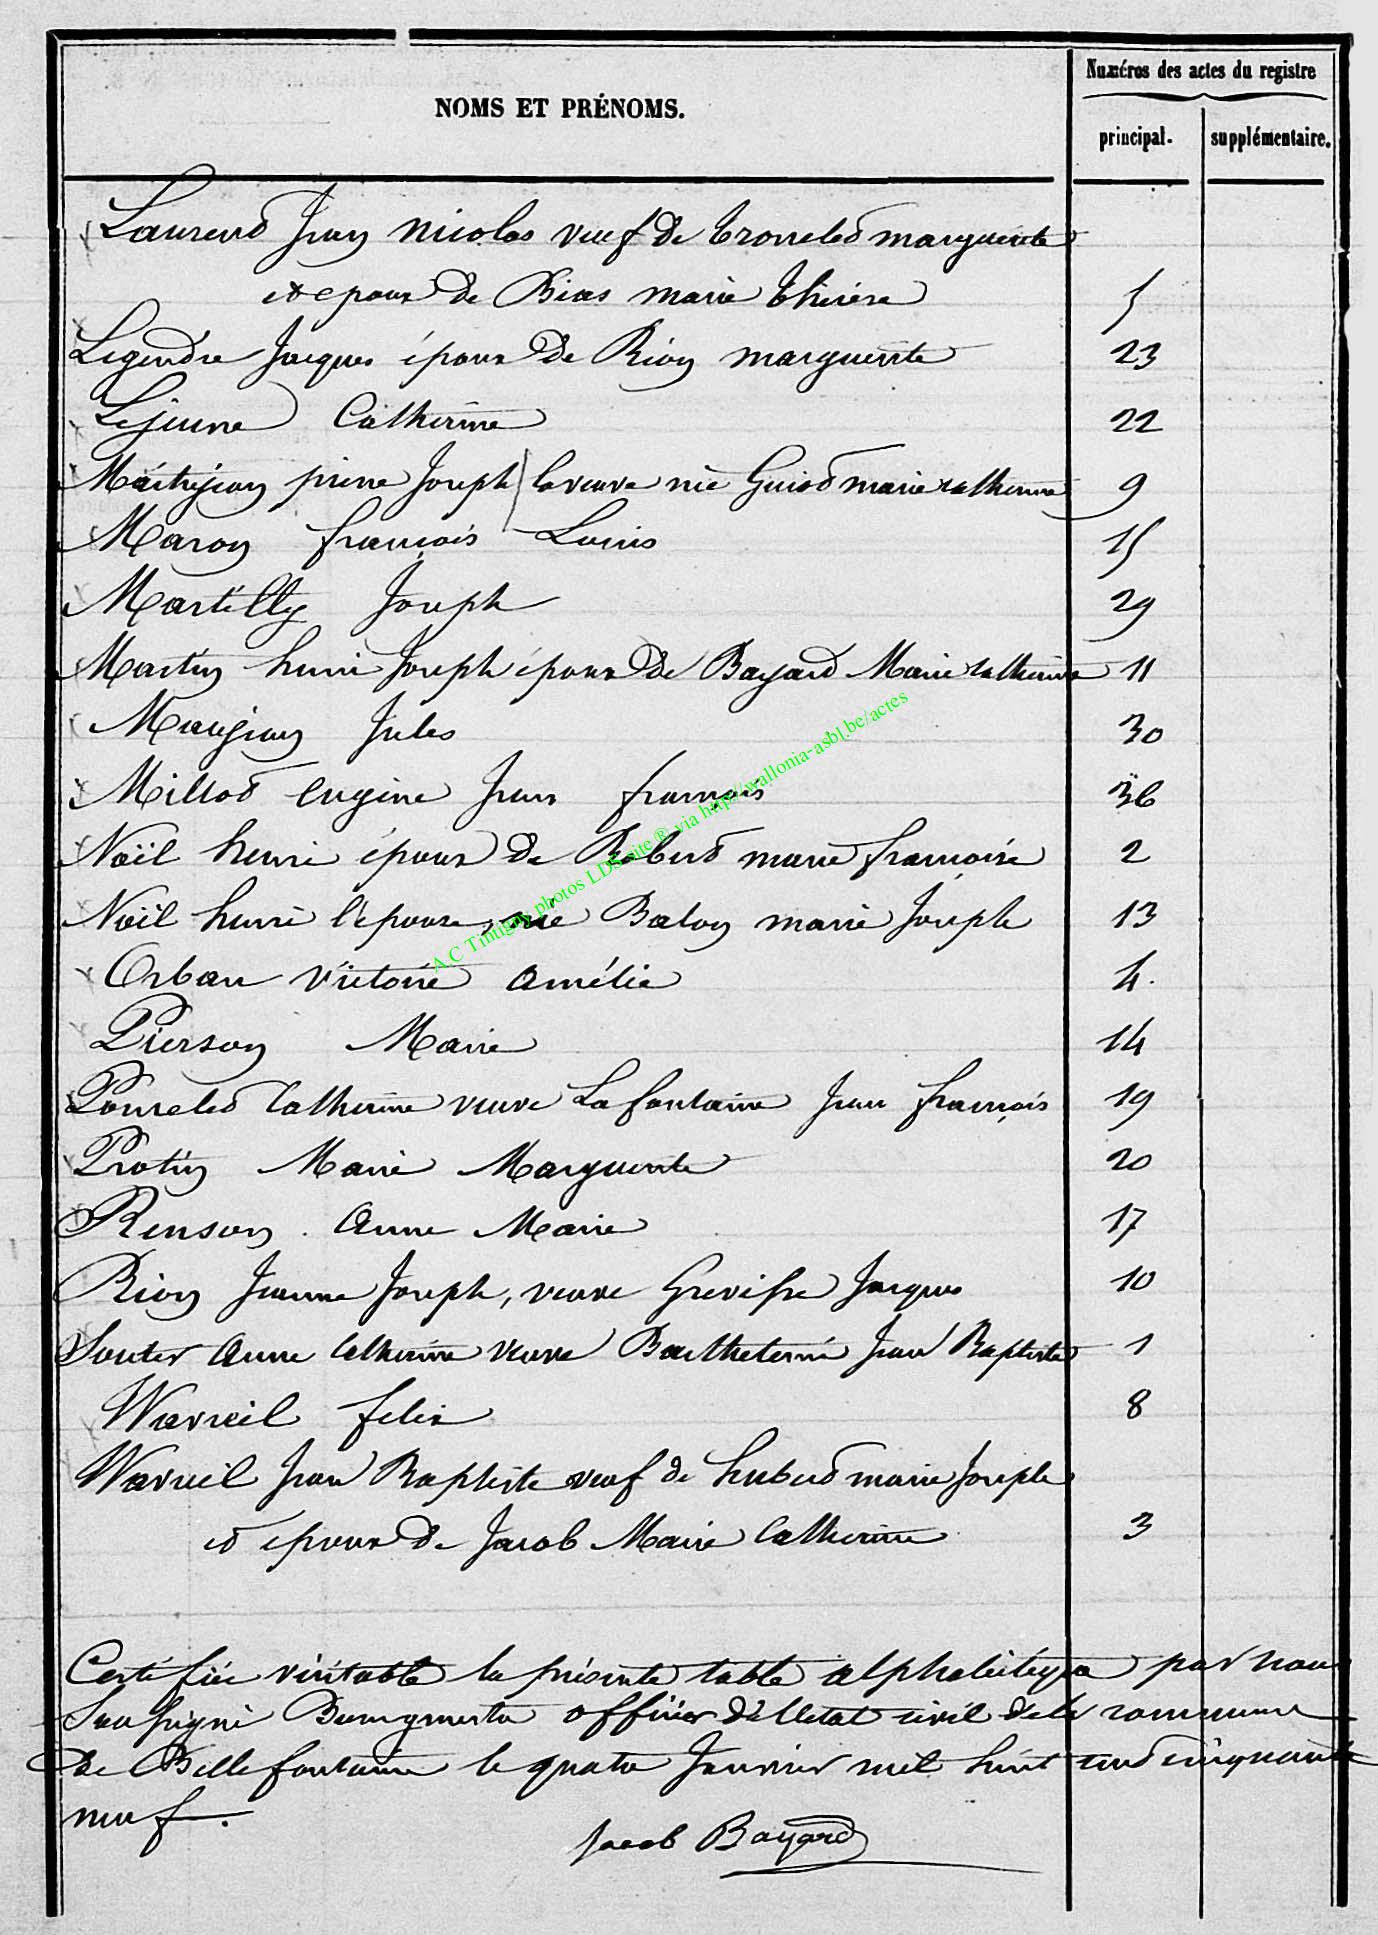 Numéros des actes du registre
NOMS ET PRÉNOMS.
principal. supplémentaire.
Laurend Jean Nicolas veuf de marguerite
et epoux de Bias marie thérèse 5
Legendre Jacques époux de Rion marguerite 23
Lejeune Catherine 22
Maitrejean pierre Joseph la veuve née Guiod marie catherine 9
Maron françois Louis 15
Martilly Joseph 29
Martin henri Joseph époux de Bayard Marie catherine 11
Maujean Jules 30
Millod Eugène Jean françois 36
Noël henri époux de Roberd marie françoise 2
Noël henri l'épouse, née Balon marie Joseph 13
Orban Victoire Amélie 4.
Pierson Marie 14
Ponceled Catherine veuve Lafontaine Jean françois 19
Protin Marie Marguerite 20
Renson Anne Marie 17
Rion Jeanne Joseph, veuve Grevisse Jacques 10
Souter Anne Catherine veuve Barthelemi Jean Baptiste 1
Wavreil felix 8
Wavreil Jean Baptiste veuf de huberd marie Joseph
et epoux de Jacob Marie Catherine 3
Certifiée véritable la présente table alphabétique par nous
Soussigné Bourgmestre officier de l'etat civil de la commune
de Bellefontaine le quatre Janvier mil huit cend cinquante
neuf.
Jacob Bayard
A.C Tintigny photos LDS site ® via http://wallonia-asbl.be/actes